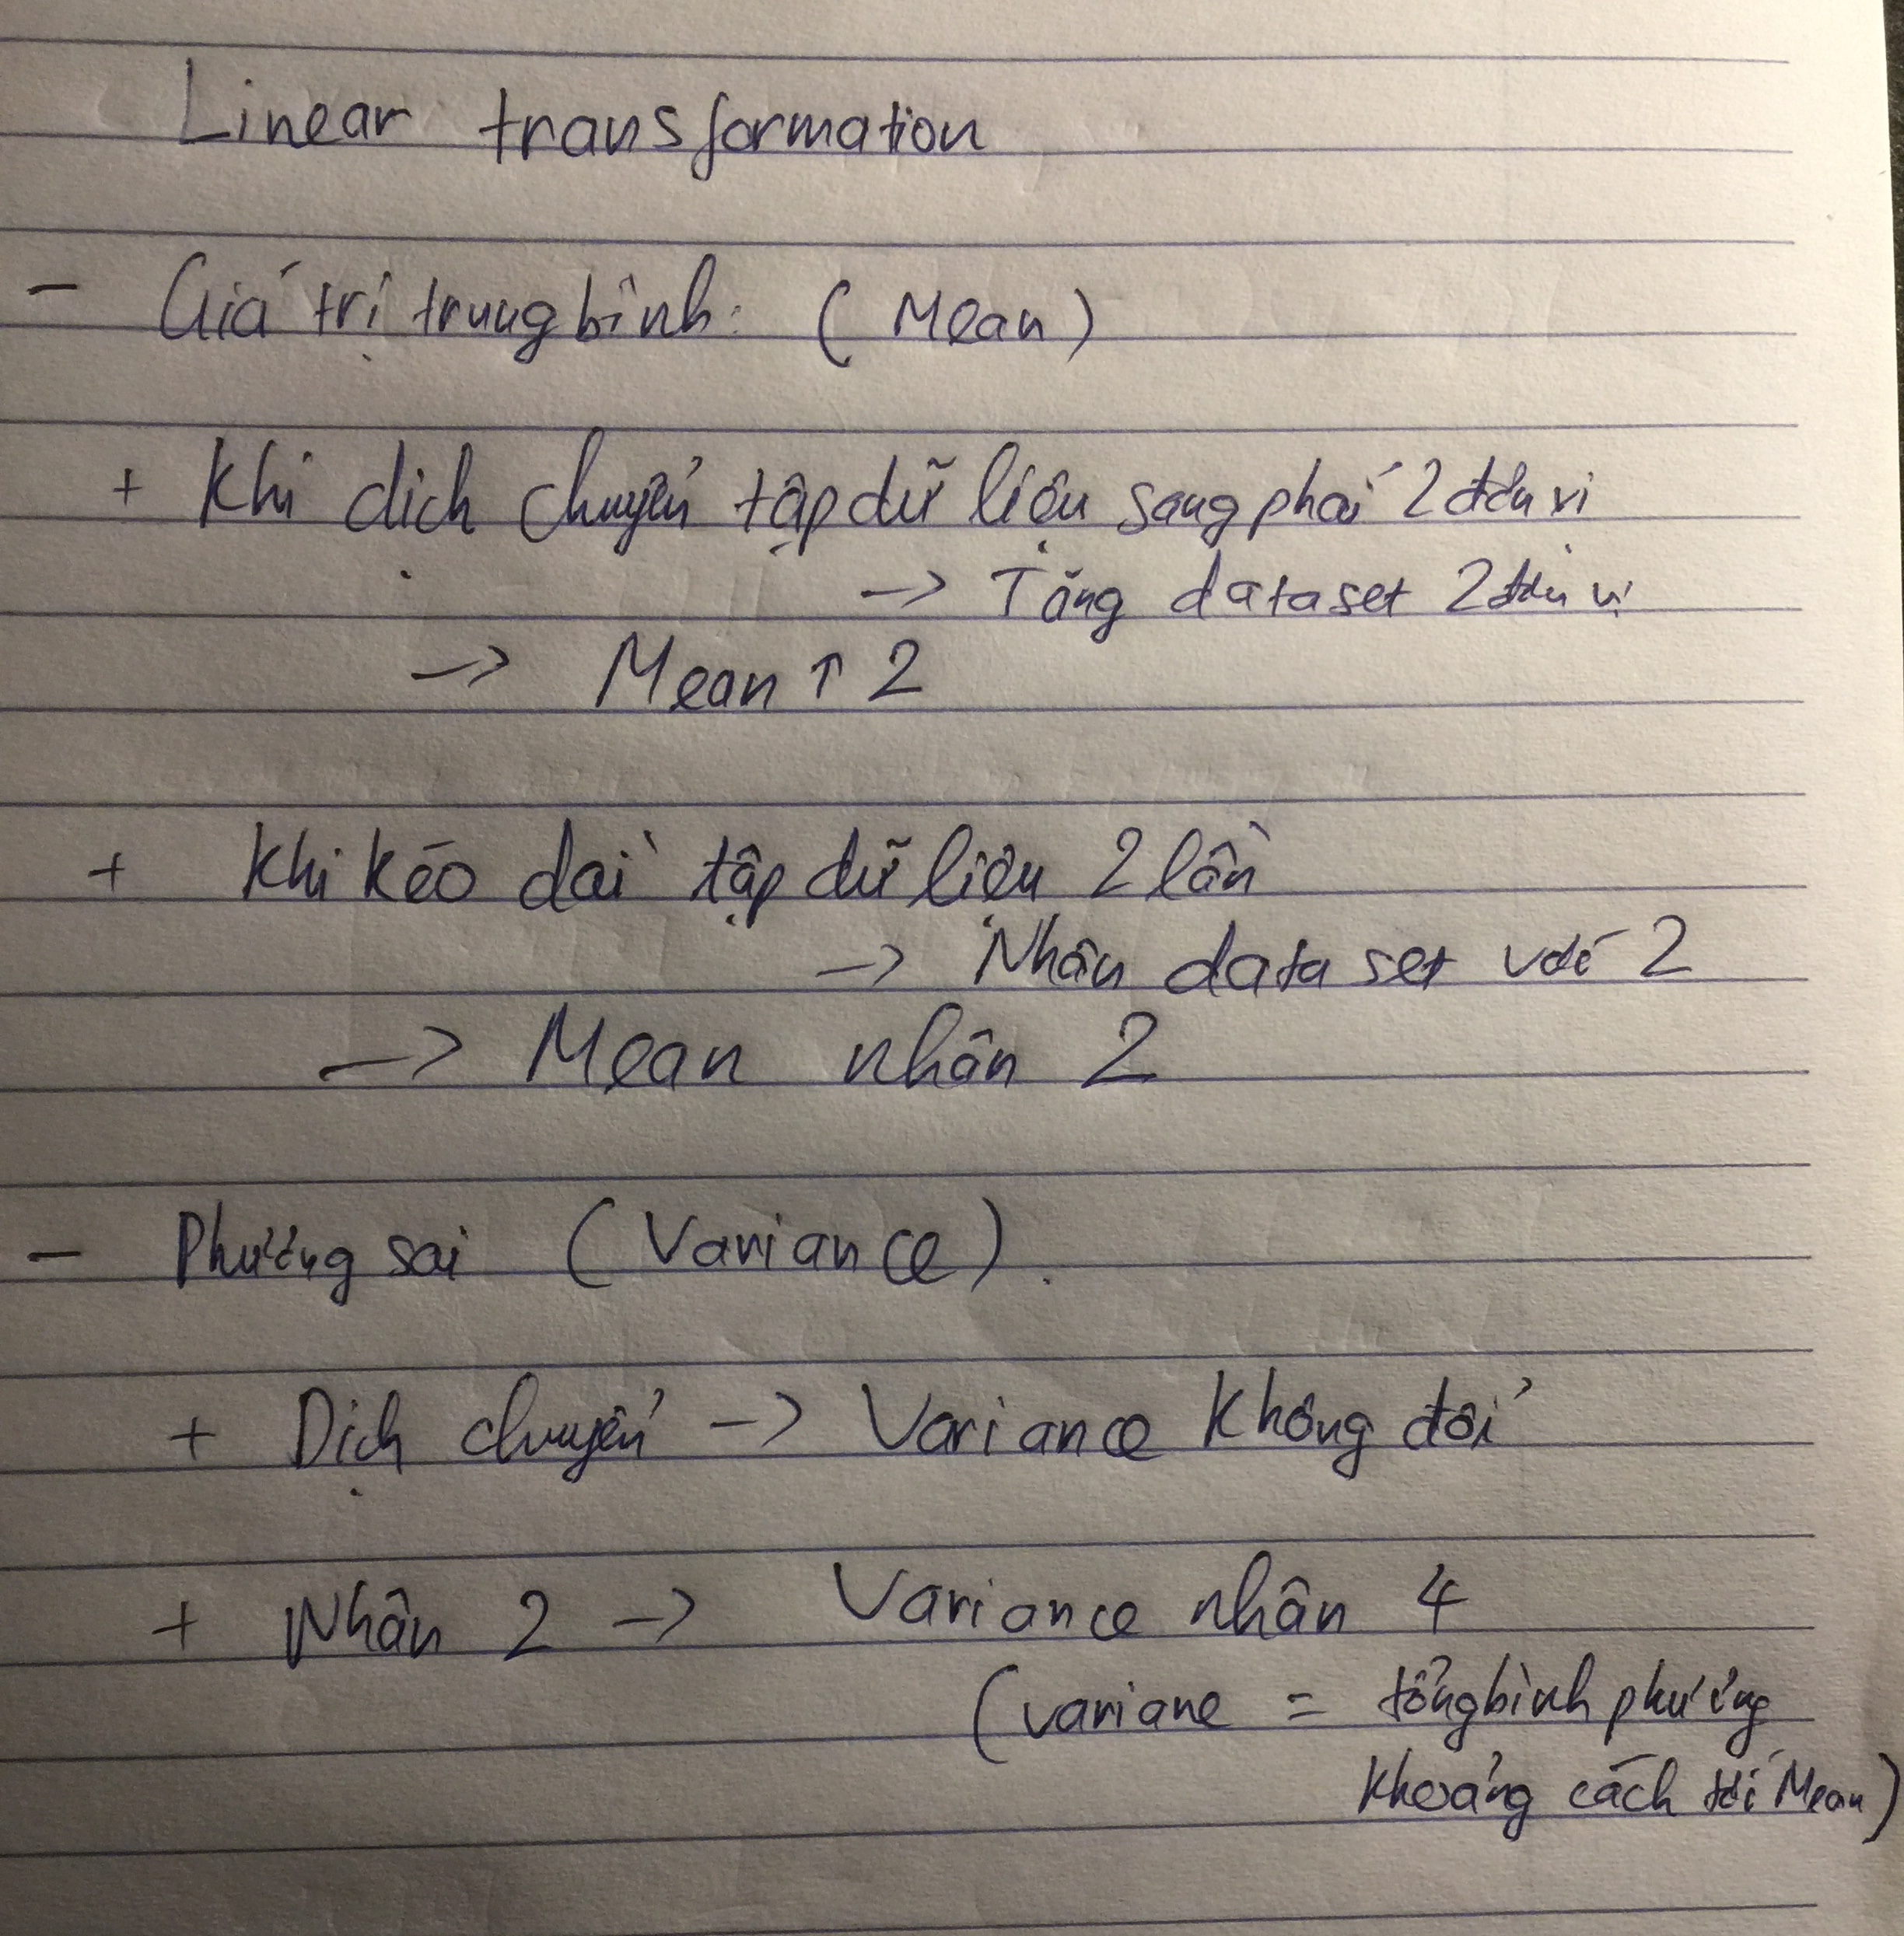 Linear transformation
- Giá trị trung bình: (Mean)
+ Khi dịch chuyển tập dữ liệu sang phải 2 đơn vị
-> Tăng dataset 2 đơn vị
-> Mean ↑ 2
+ Khi kéo dài tập dữ liệu 2 lần
-> Nhân data set với 2
-> Mean nhân 2
- Phương sai (Variance).
+ Dịch chuyển -> Variance không đổi
+ Nhân 2 -> Variance nhân 4
(variane = tổng bình phương
khoảng cách tới Mean)